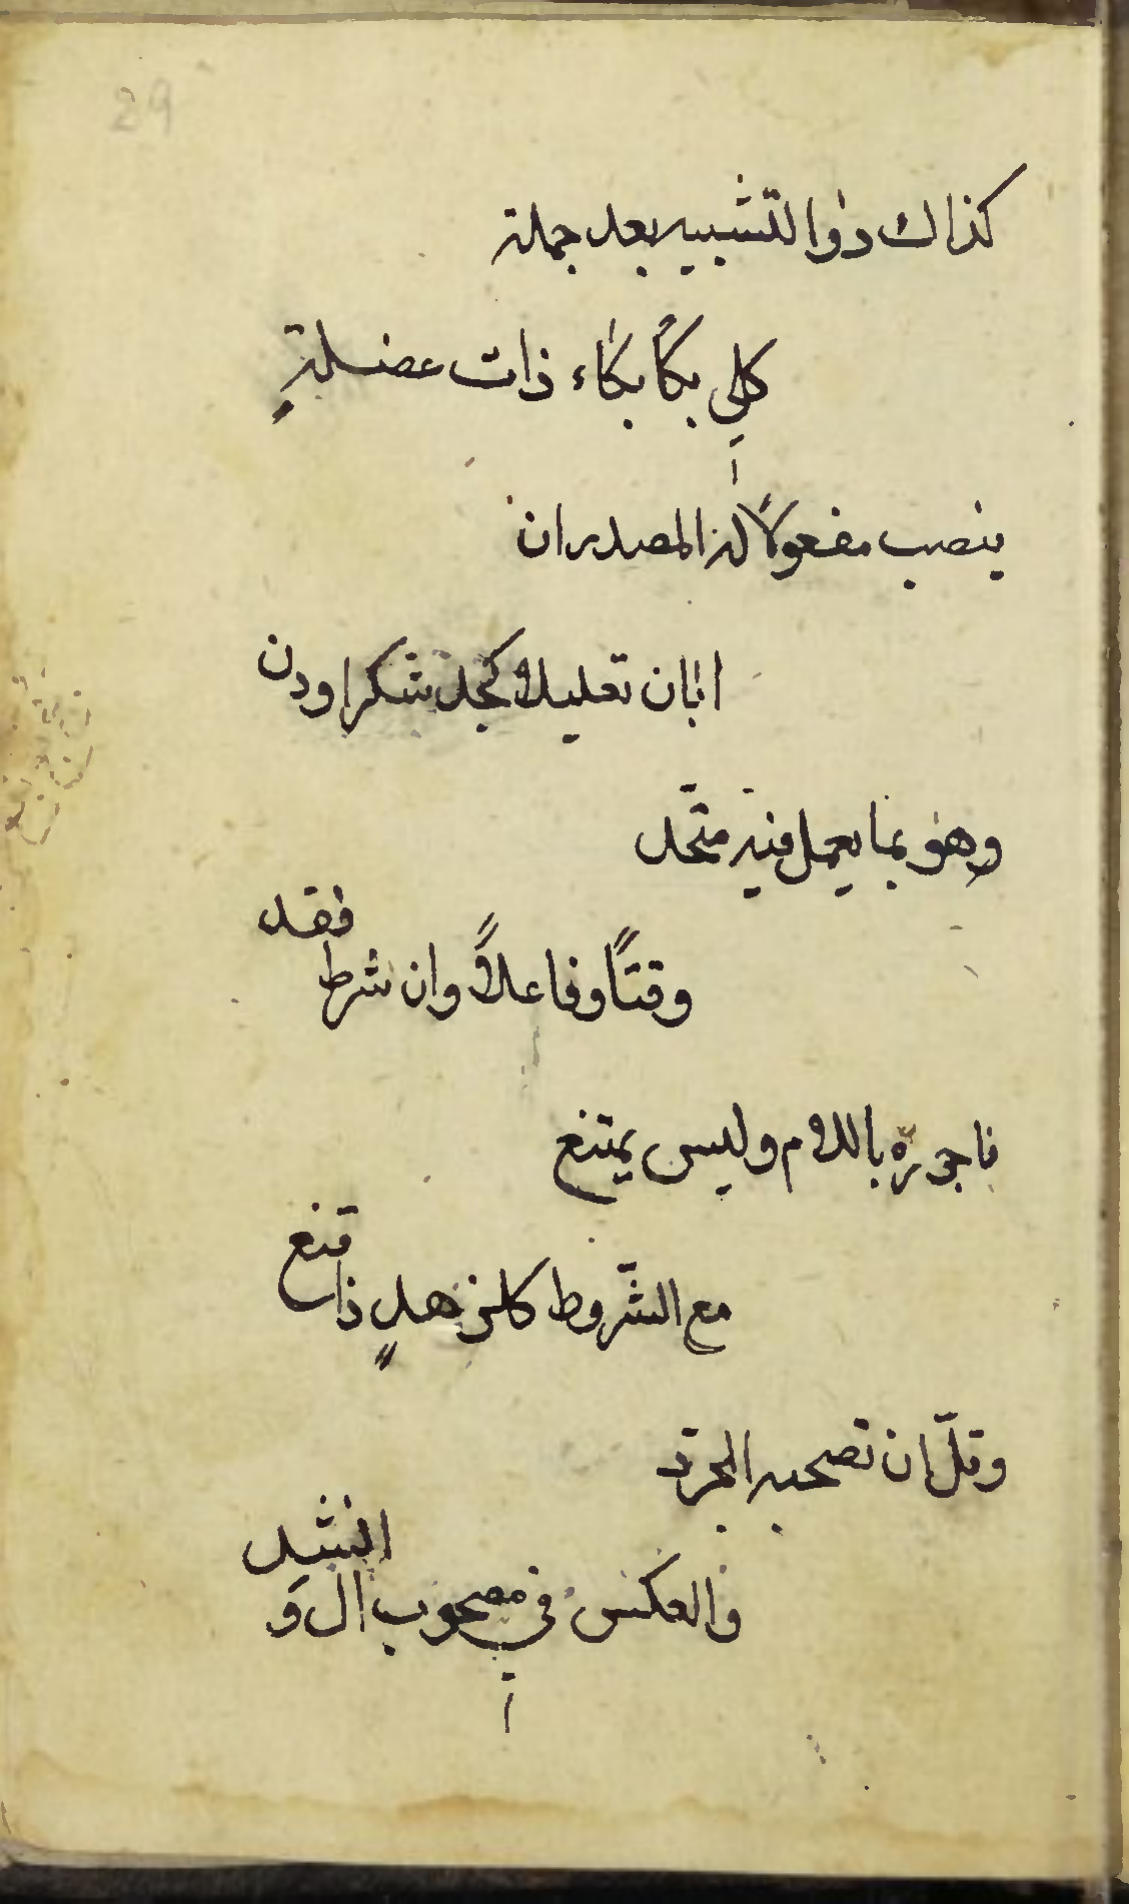 29
كذاك ذوا التشبيه بعد جملة
كلي بكًا بكاء ذات عضلةٍ
ينصب مفعولًا له المصدر ان
ابان تعليلا كجد شكرا ودن
وهو بما يعمل فيه متّحد
وقتًا وفاعلًا وان شرط فقد
فاجرره باللام وليس يمتنع
مع الشّروط كلزهدٍ ذا قنع
وقلّ ان تصحبه المجرّد
والعكس في مصحوب ال وَ انشد